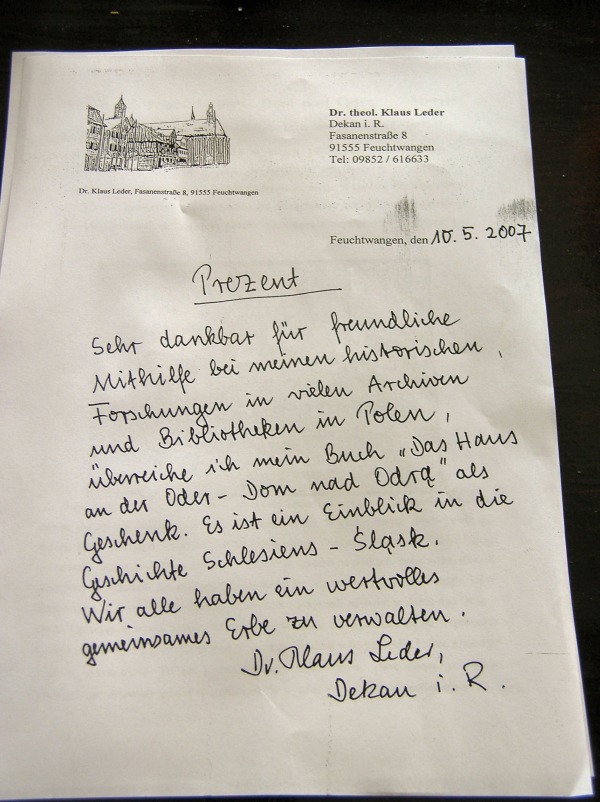 Dr. theol. Klaus Leder
Dekan i. R.
Fasanenstraße 8
91555 Feuchtwangen
Tel: 09852 / 616633
Dr. Klaus Leder, Fasanenstraße 8, 91555 Feuchtwangen
Feuchtwangen, den 10. 5. 2007
Prezent
Sehr dankbar für freundliche
Mithilfe bei meinen historischen
Forschungen in vielen Archiven
und Bibliotheken in Polen,
überreiche ich mein Buch „Das Haus
an der Oder - Dom nad Odrą" als
Geschenk. Es ist ein Einblick in die
Geschichte Schlesiens - Śląsk.
Wir alle haben ein wertvolles
gemeinsames Erbe zu verwalten.
Dr. Klaus Leder,
Dekan i. R.